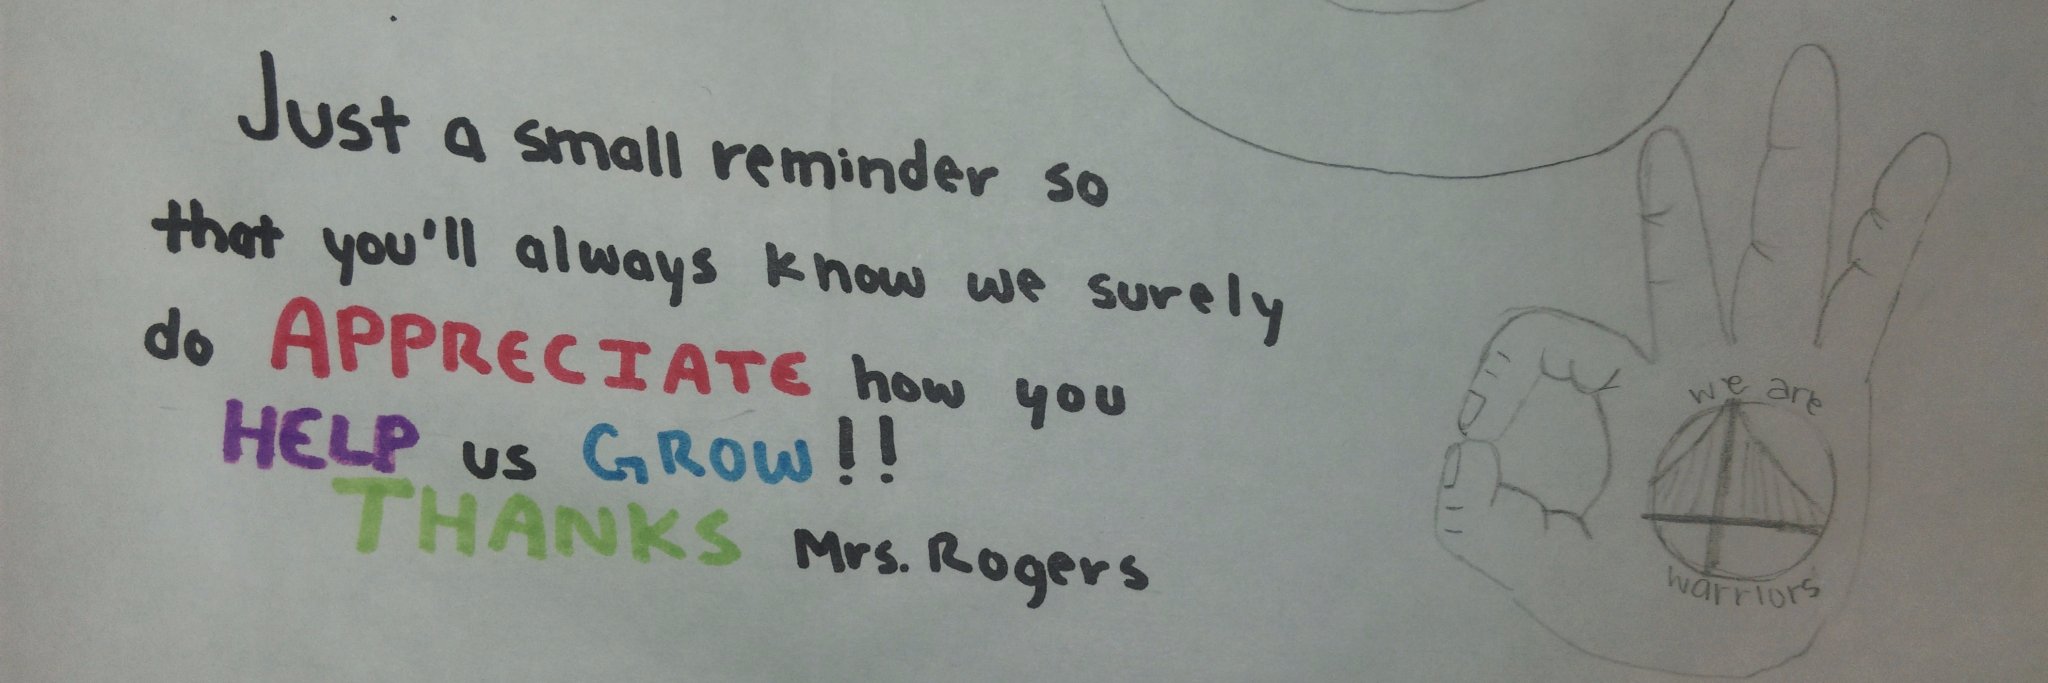 Just a small reminder so
that you'll always know we surely
do APPRECIATE how you
HELP us GROW!!
THANKS Mrs. Rogers
we are
warriors